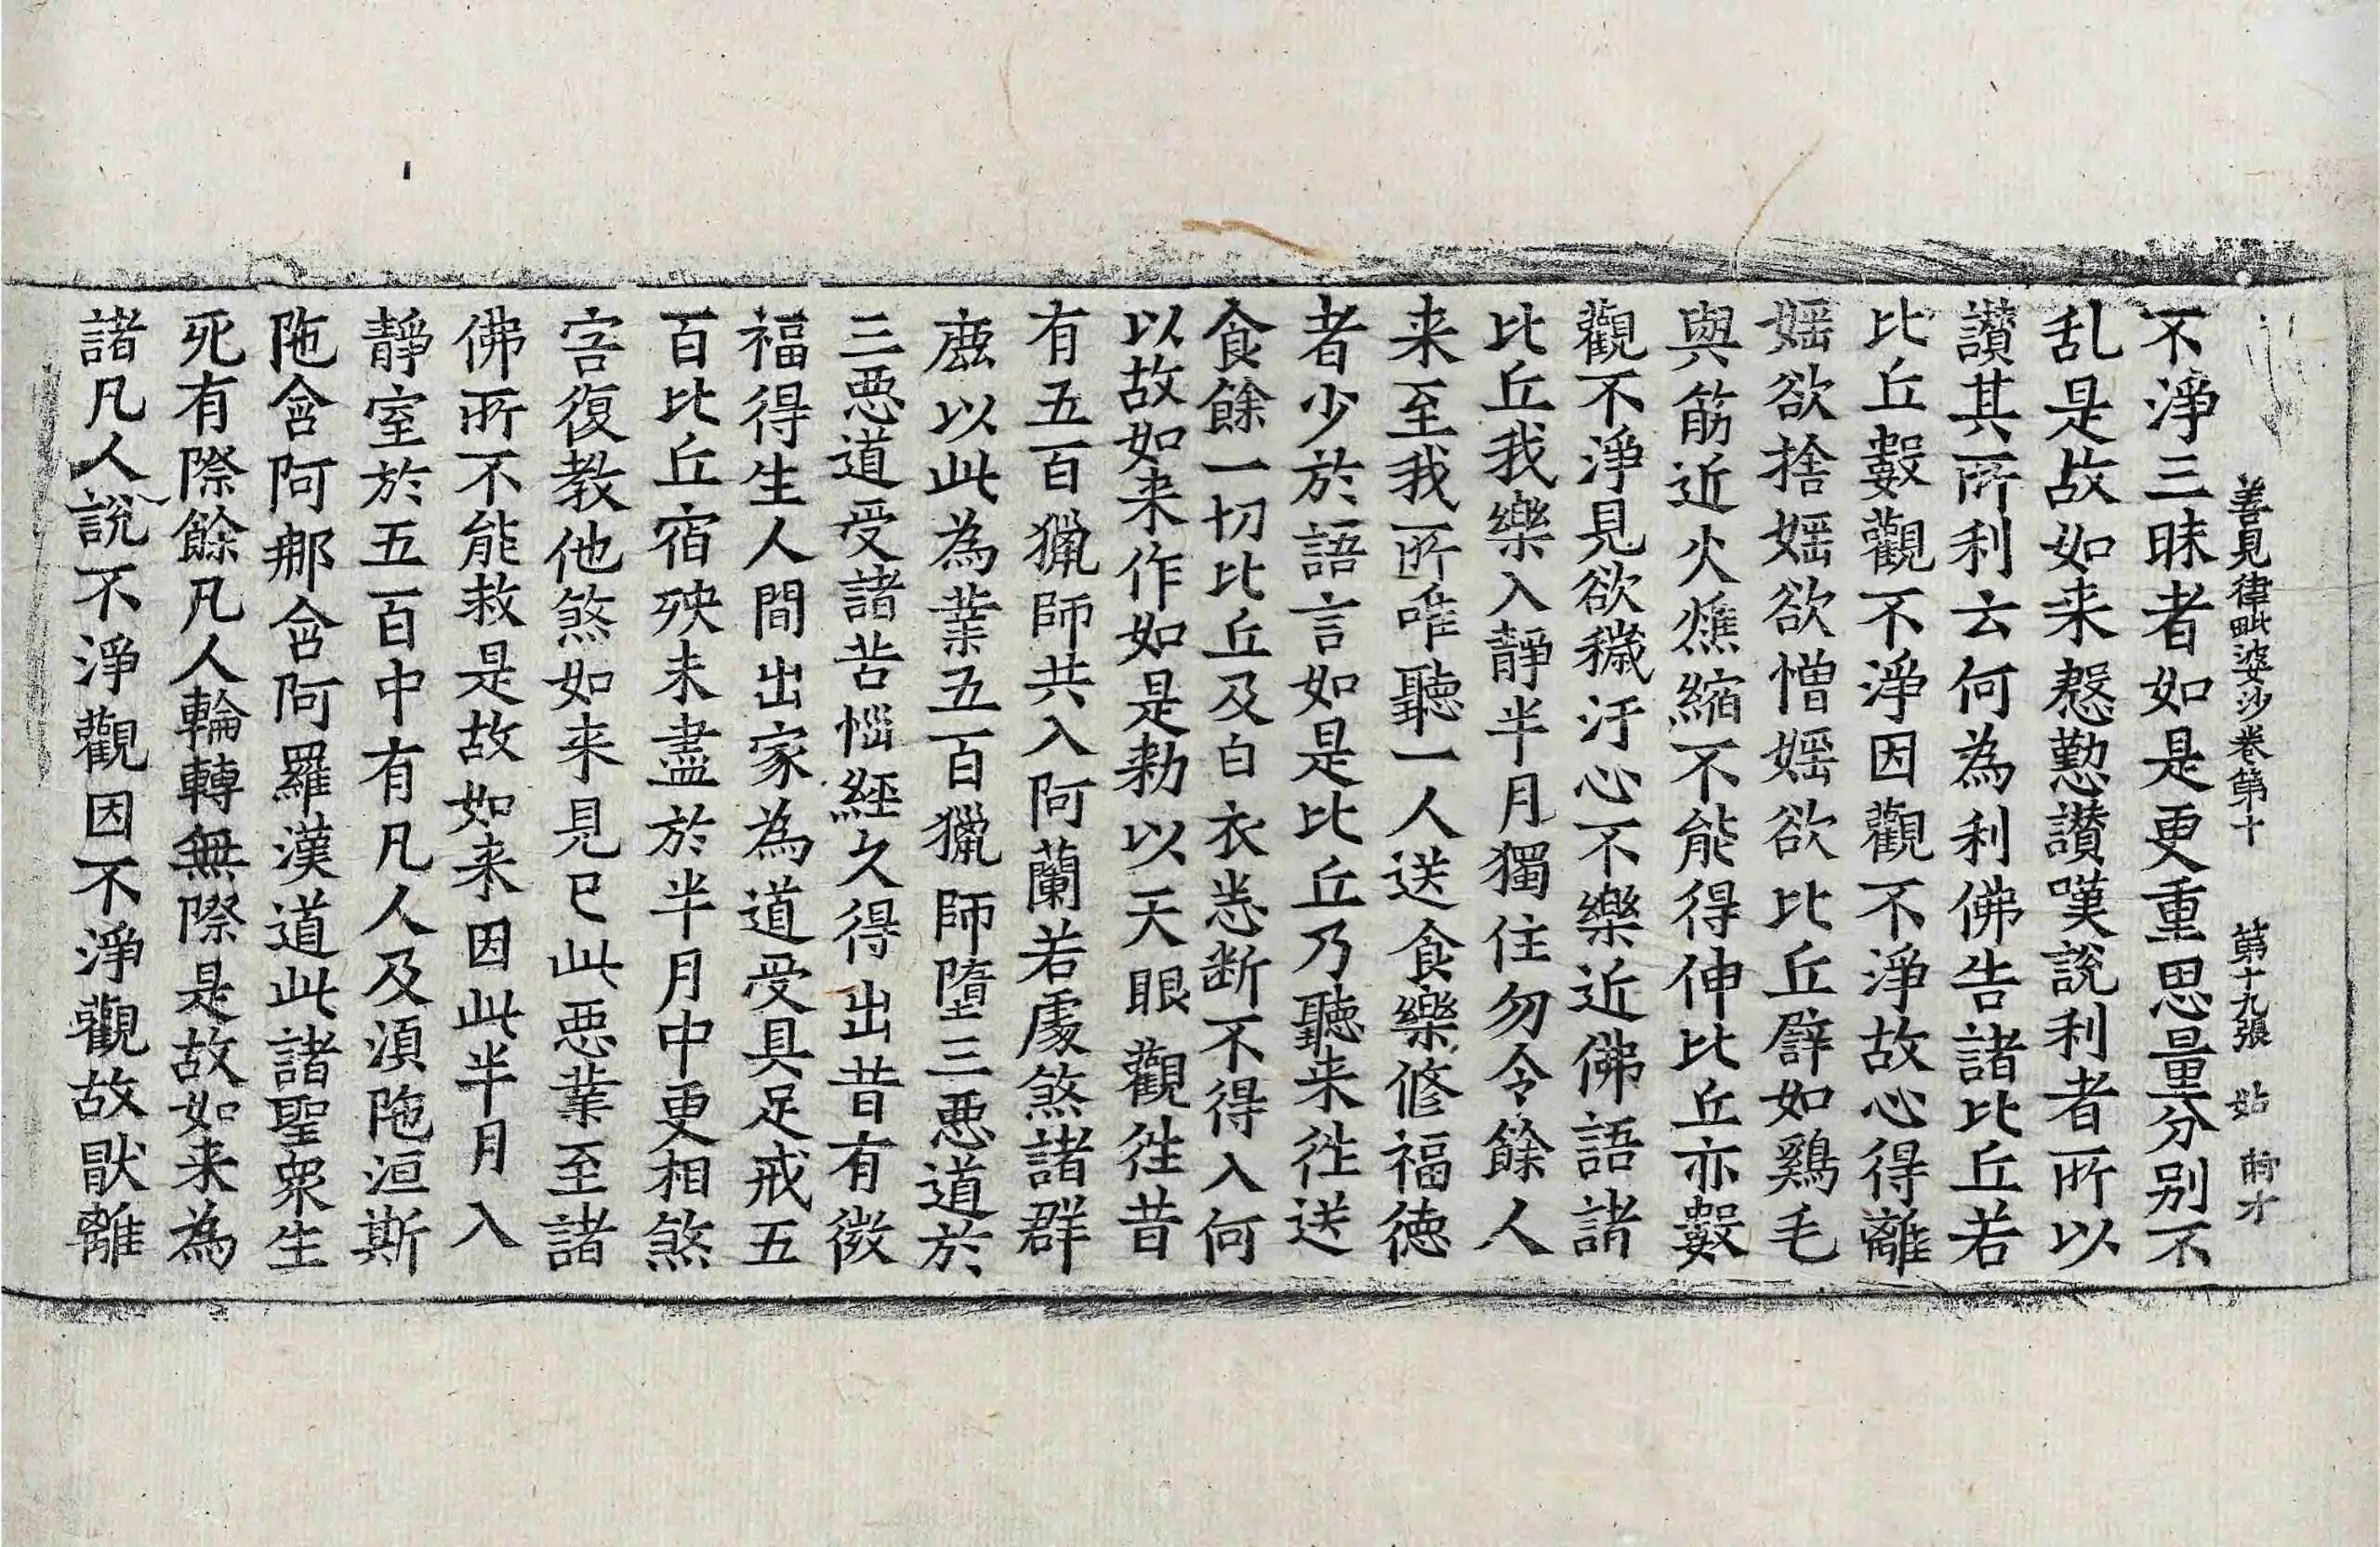 善見律毗婆沙卷第十　第十九張　姑
不淨三昧者如是更重思量分别不
乱是故如来慇懃讃嘆說利者所以
讃其所利云何為利佛告諸比丘若
比丘數觀不淨因觀不淨故心得離
婬欲捨婬欲憎婬欲比丘譬如鷄毛
與筋近火燋縮不能得伸比丘亦數
觀不淨見欲穢汙心不樂近佛語諸
比丘我樂入靜半月獨住勿令餘人
来至我所唯聽一人送食樂修福德
者少於語言如是比丘乃聽来往送
食餘一切比丘及白衣悉断不得入何
以故如来作如是勑以天眼觀往昔
有五百獵師共入阿蘭若處煞諸群
鹿以此為業五百獵師墮三惡道於
三惡道受諸苦惱經久得出昔有微
福得生人間出家為道受具足戒五
百比丘宿殃未盡於半月中更相煞
害復教他煞如来見已此惡業至諸
佛所不能救是故如来因此半月入
靜室於五百中有凡人及湏陁洹斯
陁含阿那含阿羅漢道此諸聖衆生
死有際餘凡人輪轉無際是故如来為
諸凡人說不淨觀因不淨觀故猒離